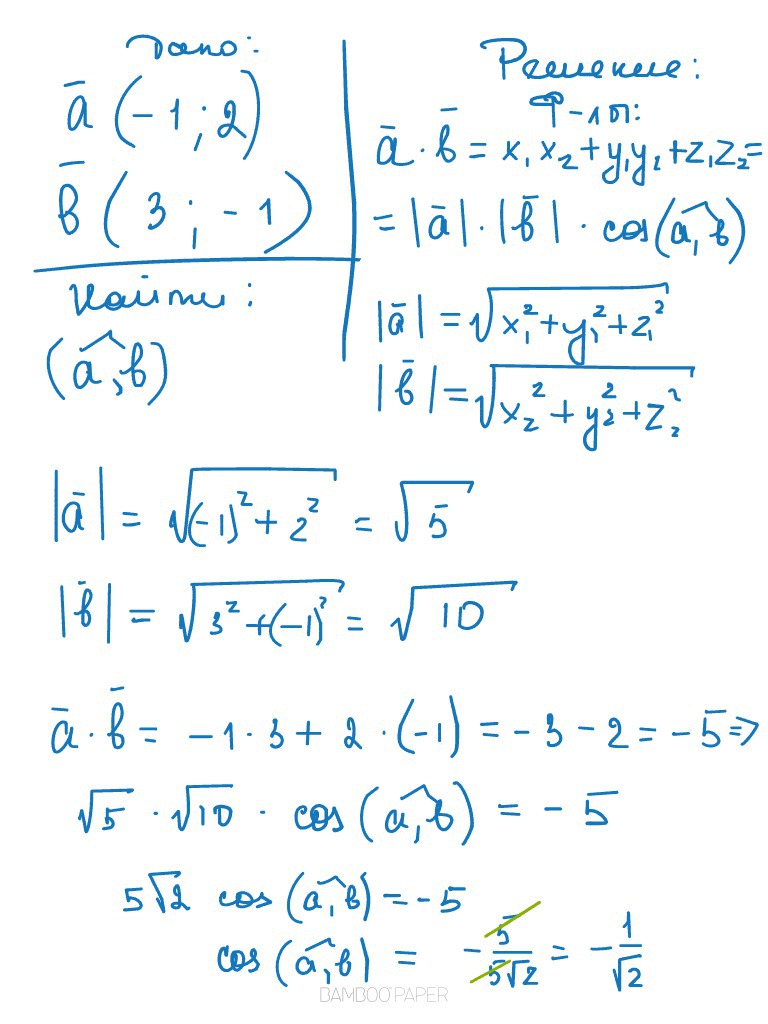 Дано:
ā (-1; 2)
b̄ (3; -1)
Найти:
(a,^b)
Решение:
Ф-лы:
ā · b̄ = x₁x₂ + y₁y₂ + z₁z₂ =
= |ā| · |b̄| · cos(a,^b)
|ā| = √(x₁² + y₁² + z₁²)
|b̄| = √(x₂² + y₂² + z₂²)
|ā| = √((-1)² + 2²) = √5
|b̄| = √(3² + (-1)²) = √10
ā · b̄ = -1 · 3 + 2 · (-1) = -3 - 2 = -5 ⇒
√5 · √10 · cos(a,^b) = -5
5√2 cos(a,^b) = -5
cos(a,^b) = -5/(5√2) = -1/√2
BAMBOO PAPER